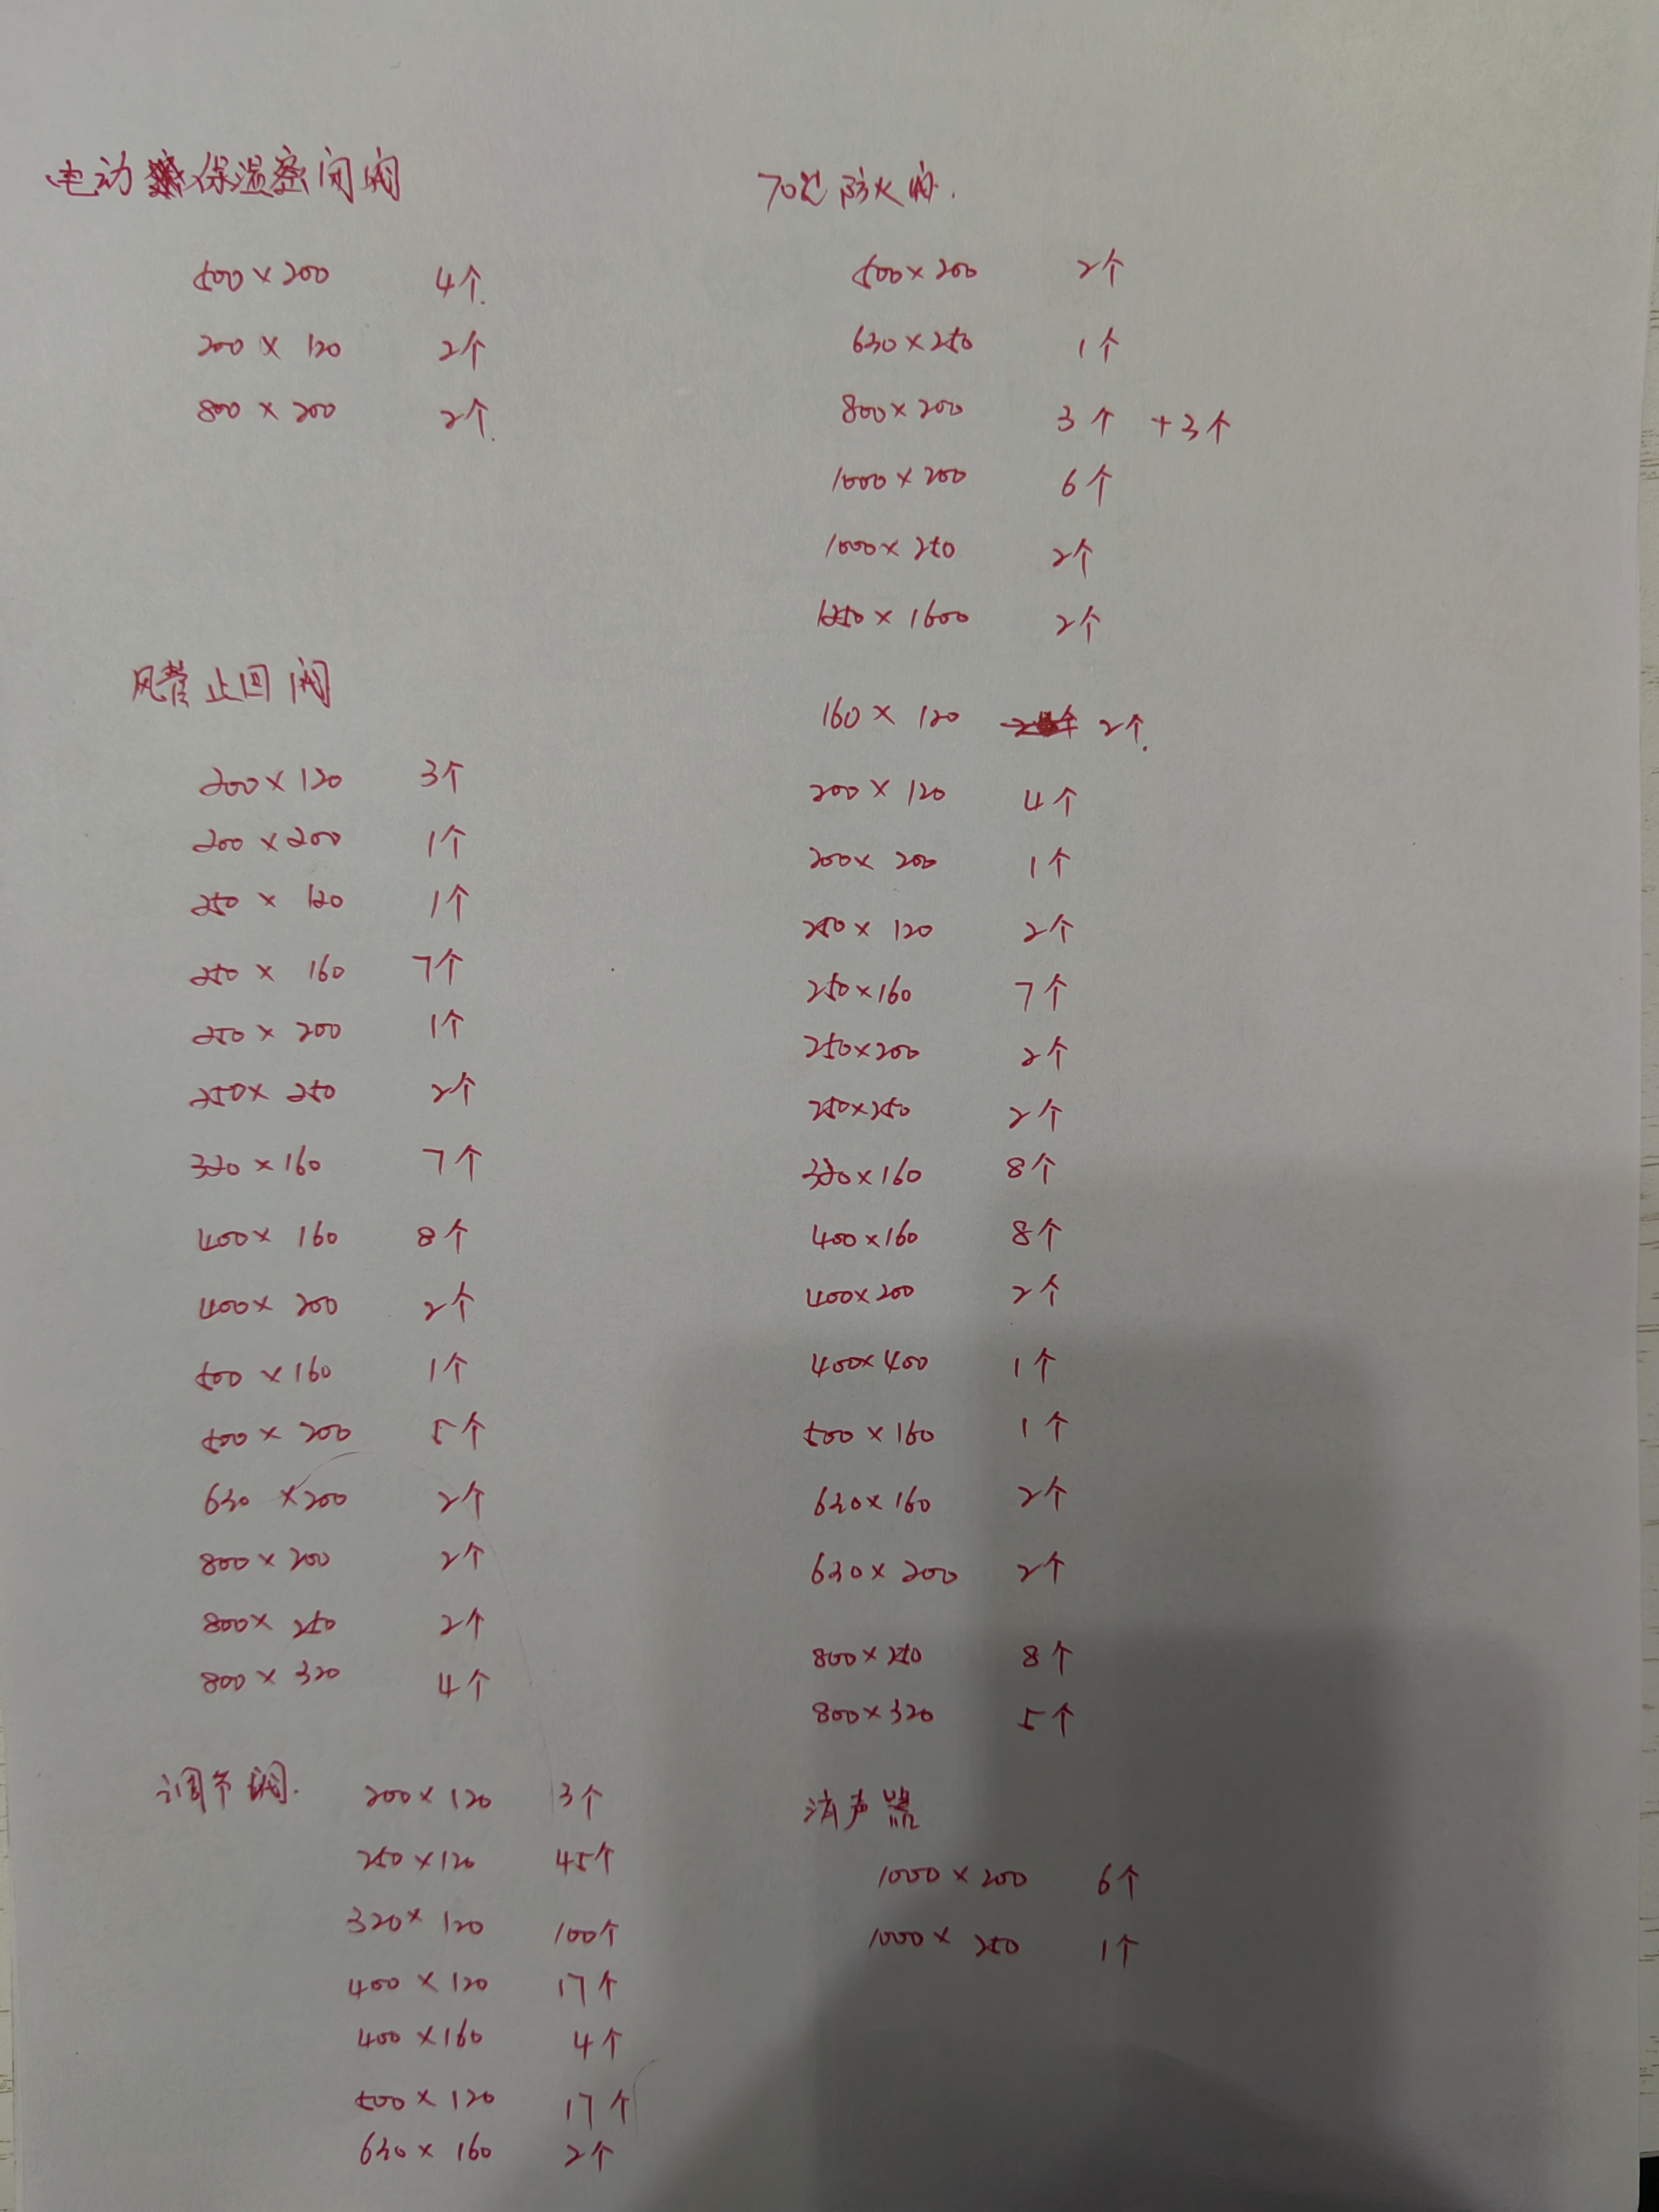 电动保温密闭阀
500×200 4个.
200×120 2个
800×200 2个.
风管止回阀
200×120 3个
200×200 1个
250×120 1个
250×160 7个
250×200 1个
250×250 2个
320×160 7个
400×160 8个
400×200 2个
500×160 1个
500×200 5个
630×200 2个
800×200 2个
800×250 2个
800×320 4个
调节阀.
200×120 3个
250×120 45个
320×120 100个
400×120 17个
400×160 4个
500×120 17个
630×160 2个
70℃防火阀.
500×200 2个
630×250 1个
800×200 3个 +3个
1000×200 6个
1000×250 2个
1250×1600 2个
160×120 2个.
200×120 4个
200×200 1个
250×120 2个
250×160 7个
250×200 2个
250×250 2个
320×160 8个
400×160 8个
400×200 2个
400×400 1个
500×160 1个
630×160 2个
630×200 2个
800×250 8个
800×320 5个
消声器
1000×200 6个
1000×250 1个